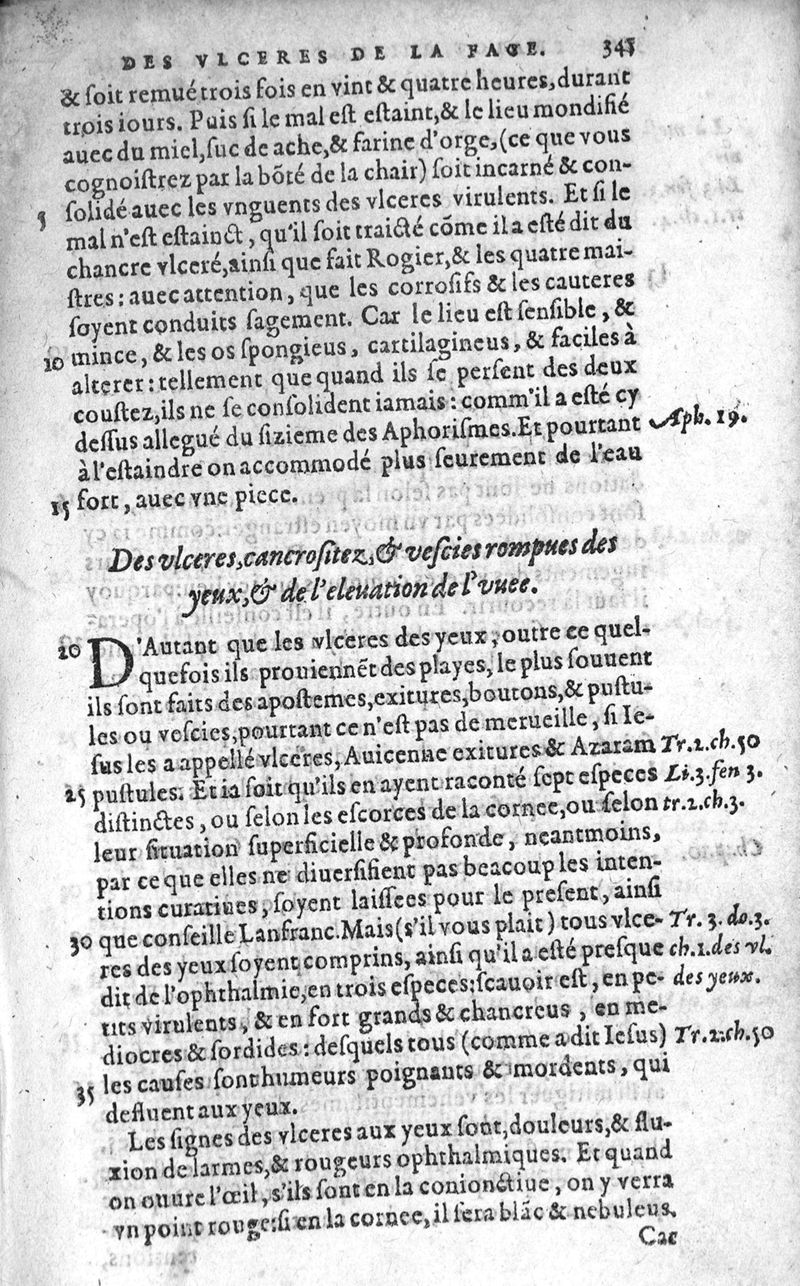 DES VLCERES DE LA FACE. 345
& ſoit remué trois fois en vint & quatre heures, durant
trois iours. Puis ſi le mal eſt eſtaint, & le lieu mondifié
auec du miel, ſuc de ache, & farine d'orge, (ce que vous
cognoiſtrez par la bõté de la chair) ſoit incarné & con-
5 ſolidé auec les vnguents des vlceres virulents. Et ſi le
mal n'eſt eſtainct, qu'il ſoit traicté cõme il a eſté dit du
chancre vlceré, ainſi que fait Rogier, & les quatre mai-
ſtres: auec attention, que les corroſifs & les cauteres
ſoyent conduits ſagement. Car le lieu eſt ſenſible, &
10 mince, & les os ſpongieus, cartilagineus, & faciles à
alterer: tellement que quand ils ſe perſent des deux
couſtez, ils ne ſe conſolident iamais: comm'il a eſté cy
deſſus allegué du ſizieme des Aphoriſmes. Et pourtant Aph. 19.
à l'eſtaindre on accommode plus ſeurement de l'eau
15 fort, auec vne piece.
Des vlceres, cancroſitez, & veſcies rompues des
yeux, & de l'eleuation de l'vuee.
20 D'Autant que les vlceres des yeux, outre ce quel-
quefois ils prouiennẽt des playes, le plus ſouuent
ils ſont faits des apoſtemes, exitures, boutons, & puſtu-
les ou veſcies, pourtant ce n'eſt pas de merueille, ſi Ie-
ſus les a appellé vlceres, Auicenne exitures & Azaram Tr. 2. ch. 50
25 puſtules. Et ia ſoit qu'ils en ayent raconté ſept eſpeces Li. 3. fen 3.
diſtinctes, ou ſelon les eſcorces de la cornee, ou ſelon tr. 2. ch. 3.
leur ſituation ſuperficielle & profonde, neantmoins,
par ce que elles ne diuerſifient pas beaucoup les inten-
tions curatiues, ſoyent laiſſees pour le preſent, ainſi
30 que conſeille Lanfranc. Mais (s'il vous plait) tous vlce- Tr. 3. do. 3.
res des yeux ſoyent comprins, ainſi qu'il a eſté preſque ch. 1. des vl.
dit de l'ophthalmie, en trois eſpeces: ſcauoir eſt, en pe- des yeux.
tits virulents, & en fort grands & chancreus, en me-
diocres & ſordides: deſquels tous (comme a dit Ieſus) Tr. 2. ch. 50
35 les cauſes ſont humeurs poignants & mordents, qui
defluent aux yeux.
Les ſignes des vlceres aux yeux ſont, douleurs, & flu-
xion de larmes, & rougeurs ophthalmiques. Et quand
on ouure l'œil, s'ils ſont en la conionctiue, on y verra
vn point rouge: ſi en la cornee, il ſera blãc & nebuleus.
Car